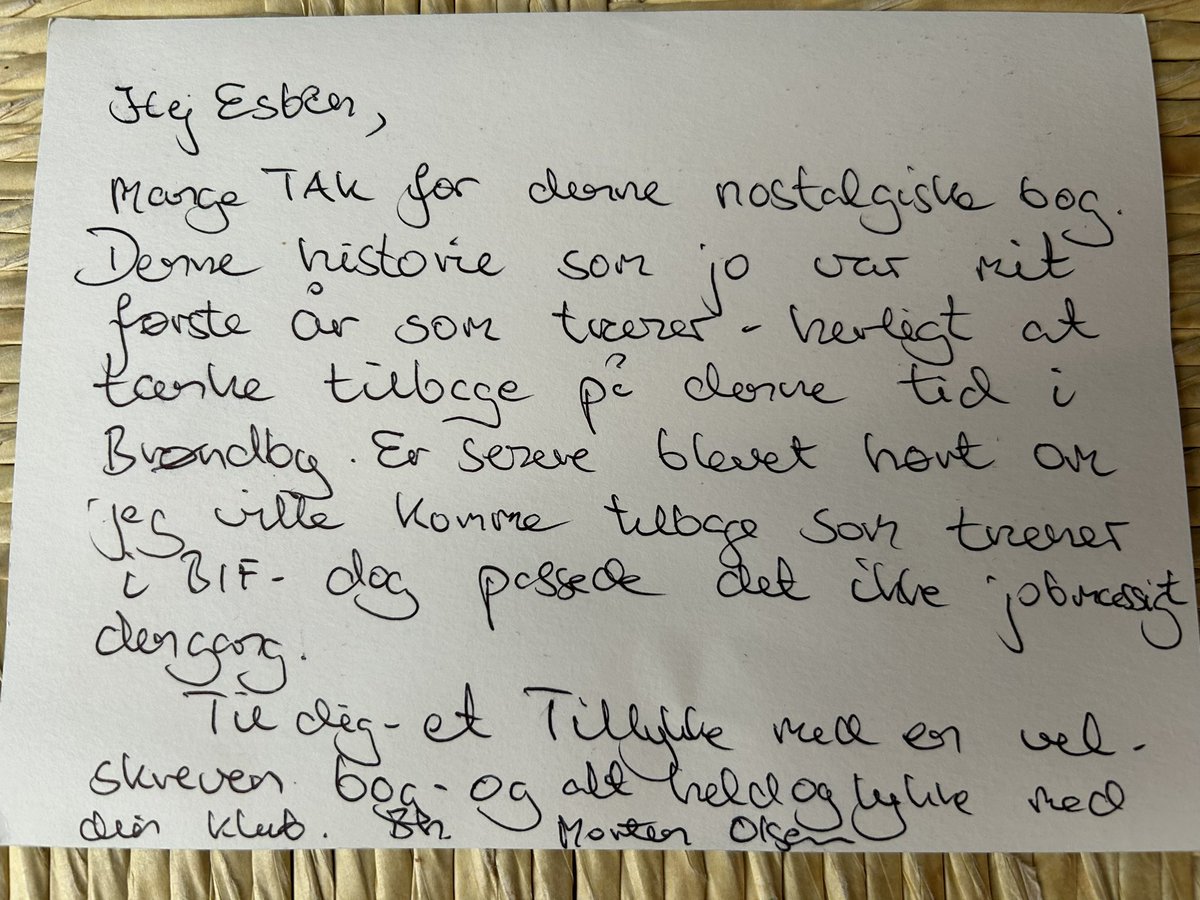 Hej Esben,
Mange TAK for denne nostalgiske bog.
Denne historie som jo var mit
første år som træner - herligt at
tænke tilbage på denne tid i
Brøndby. Er senere blevet hørt om
jeg ville komme tilbage som træner
i BIF - dog passede det ikke jobmæssigt
dengang.
Til dig - et Tillykke med en vel-
skreven bog - og alt held og lykke med
din klub. Bh Morten Olsen